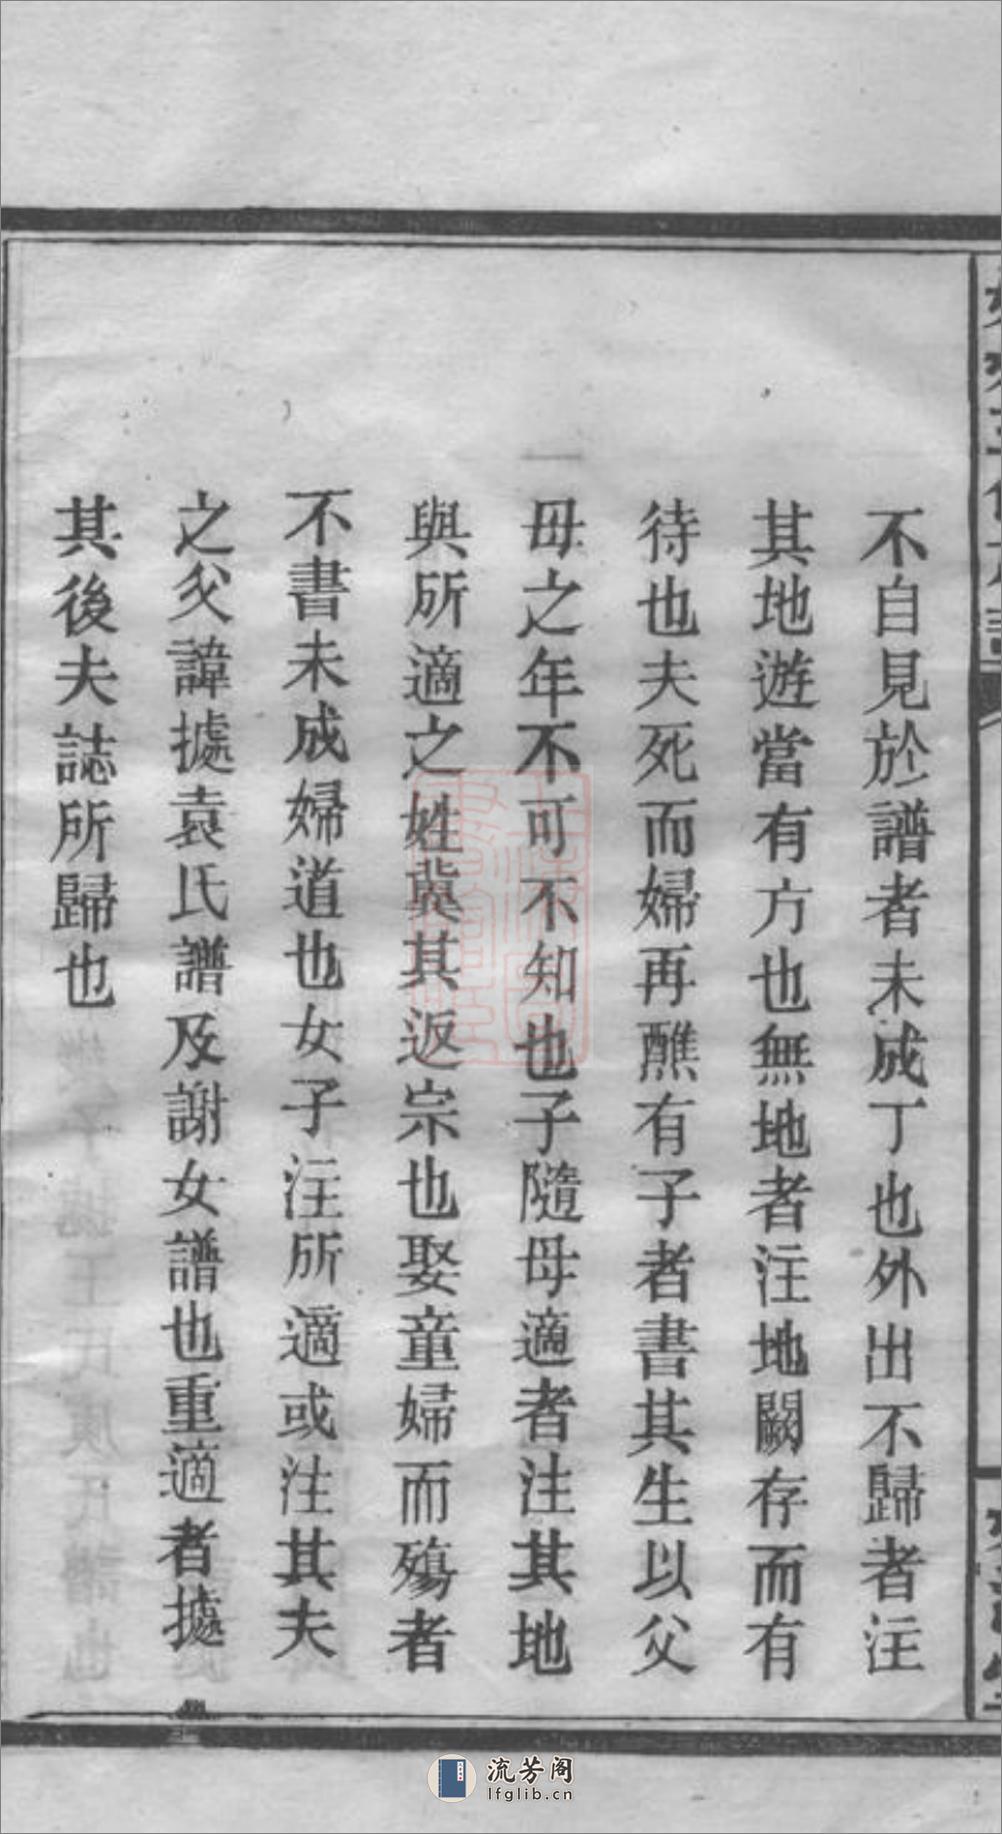 不自見於譜者未成丁也外出不歸者注
其地遊當有方也無地者注地闕存而有
待也夫死而婦再醮有子者書其生以父
一母之年不可不知也子隨母適者注其地
與所適之姓冀其返宗也娶童婦而殤者
不書未成婦道也女子注所適或注其夫
之父諱據袁氏譜及謝女譜也重適者據
其後夫誌所歸也
流芳阁
lfglib.cn